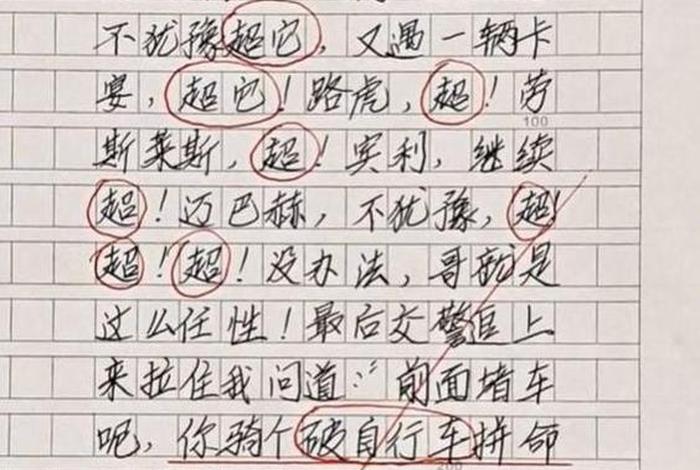 不犹豫超它，又遇一辆卡
宴，超它！路虎，超！劳
100
斯莱斯，超！宾利，继续
超！迈巴赫，不犹豫，超！
超！超！没办法，哥就是
这么任性！最后交警追上
来拉住我问道："前面堵车
吧，你骑个破自行车拼命
200